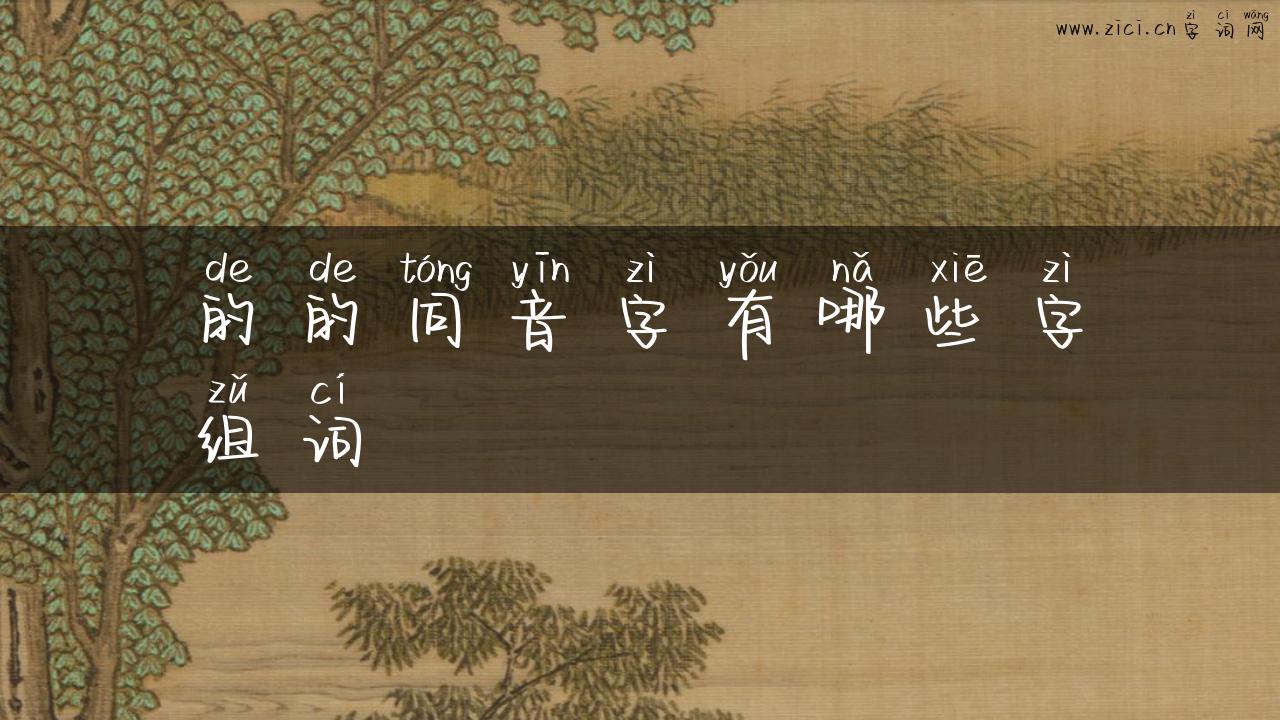 zì cí wǎng
www.zici.cn 字词网
de de tóng yīn zì yǒu nǎ xiē zì
的的同音字有哪些字
zǔ cí
组词